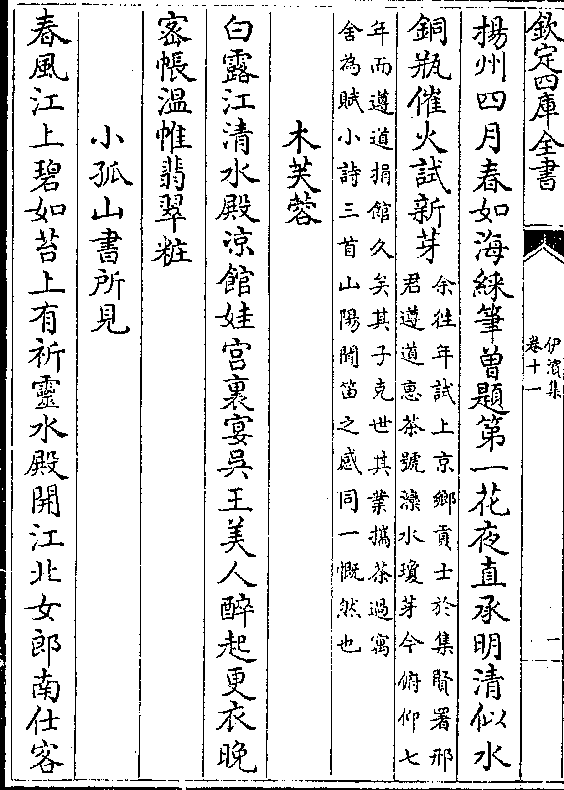 欽定四庫全書
伊濱集
卷十一
一
揚州四月春如海綵筆曾題第一花夜直承明清似水
銅瓶催火試新芽
余往年試上京鄉貢士於集賢署邢
君遵道惠茶號灤水瓊芽今俯仰七
年而遵道捐館久矣其子克世其業攜茶過寓
舍為賦小詩三首山陽聞笛之感同一慨然也
木芙蓉
白露江清水殿凉館娃宮裏宴吳王美人醉起更衣晚
宻帳溫帷翡翠粧
小孤山書所見
春風江上碧如苔上有祈靈水殿開江北女郎南仕客